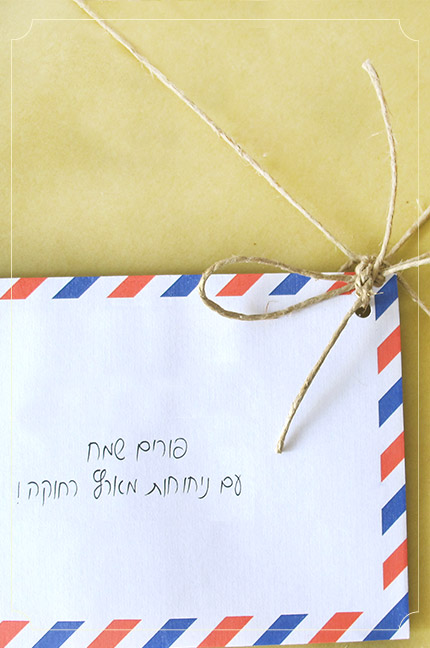 פורים שמח
עם ניחוחות מארץ רחוקה!